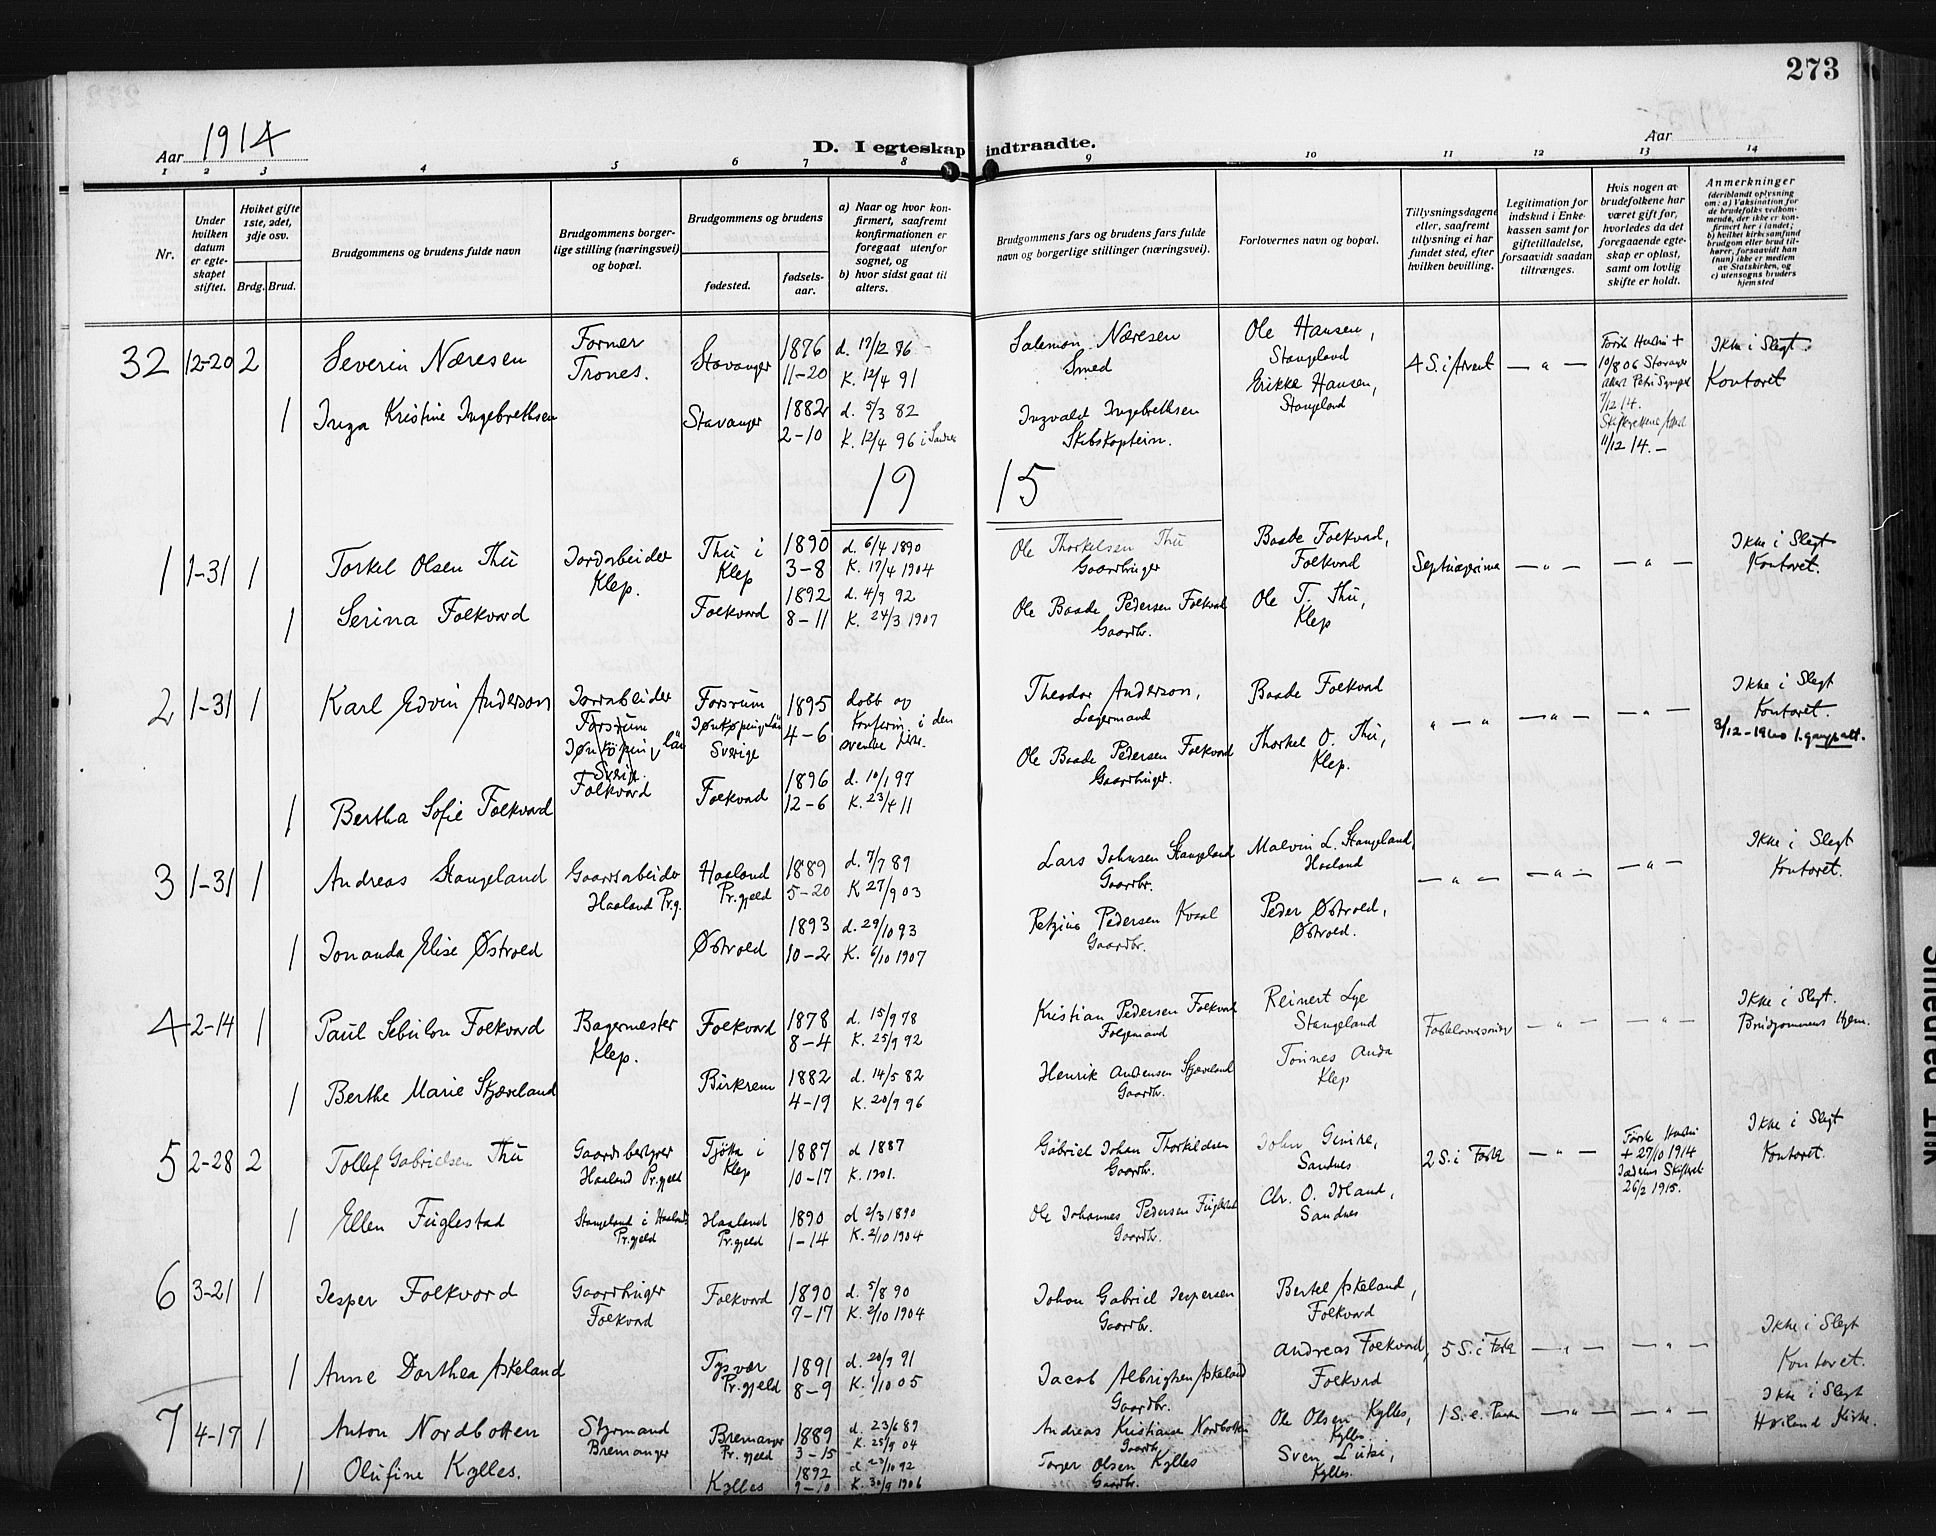 273
Aar 1914
D. I egteskap indtraadte.
Aar
1 2 3 4 5 6 7 8 9 10 11 12 13 14
Nr.
Under hvilken datum er egteskapet stiftet.
Hviket gifte 1ste, 2det, 3dje osv.
Brdg. Brud.
Brudgommens og brudens fulde navn
Brudgommens borgerlige stilling (næringsvei) og bopæl.
Brudgommens og brudens
fødested.
fødselsaar.
a) Naar og hvor konfirmert, saafremt konfirmationen er foregaat utenfor sognet, og
b) hvor sidst gaat til alters.
Brudgommens fars og brudens fars fulde navn og borgerlige stillinger (næringsvei).
Forlovernes navn og bopæl.
Tillysningsdagene eller, saafremt tillysning ei har fundet sted, efter hvilken bevilling.
Legitimation for indskud i Enkekassen samt for giftetilladelse, forsaavidt saadan tiltrænges.
Hvis nogen av brudefolkene har været gift før, hvorledes da det foregaaende egteskap er opløst, samt om lovlig skifte er holdt.
Anmerkninger (deriblandt oplysning om: a) Vaksination for de brudefolks vedkommende, der ikke er konfirmert her i landet; b) hvilket kirkesamfund brudgom eller brud tilhører, forsaavidt han (hun) ikke er medlem av Statskirken, og c) utensogns bruders hjemsted
32 12-20 2 Severin Næresen Former Trones. Stavanger 1876 11-20 d. 17/12 86 K. 12/4 91 Salemon Næresen Smed Ole Hansen, Stangeland Erikke Hansen, Stangeland 4 S. i Advent — " — 10/8 06 Stavanger 7/12 14. 11/12 14. — Ikke i Slegt. Kontoret
1 Inga Kristine Ingebrethsen Stavanger 1882 2-10 d. 5/3 82 K. 12/4 96 Ingvald Ingebrethsen Skibskaptein.
19 15
1 1-31 1 Torkel Olsen Thu Jordarbeider Klep. Thu i Klep 1890 3-8 d. 6/4 1890 K. 17/4 1904 Ole Thorkelsen Thu Gaardbruger Baade Folkvord, Folkvord Septuagesima — " — — " — Ikke i Slegt Kontoret.
1 Serina Folkvord Folkvord 1892 8-11 d. 4/9 92 K. 24/3 1907 Ole Baade Pedersen Folkvord Gaardbr. Ole T. Thu, Klep
2 1-31 1 Karl Edvin Anderson Jordarbeider Forsrum Jönköping Län Sverige Forsrum Jönköping Län Sverige 1895 4-6 døbt og Konfirm. i den svenske kirke. Theodor Anderson, Lagermand Baade Folkvord " — " — " — — " — Ikke i Slegt Kontoret. 3/12-1960
1 Bertha Sofie Folkvord Folkvord Folkvord 1896 12-6 d. 10/1 97 K. 23/4 11 Ole Baade Pedersen Folkvord Gaardbruger. Thorkel O. Thu, Klep.
3 1-31 1 Andreas Stangeland Gaardsarbeider Haaland Pr.g. Haaland Pr.gjeld 1889 5-20 d. 7/7 89 K 27/9 03 Lars Johnsen Stangeland Gaardbr. Malvin L. Stangeland, Haaland — " — — " — — " — Ikke i Slegt Kontoret.
1 Jonanda Elise Østvold Østvold 1893 10-2 d. 29/10 93 K. 6/10 1907 Pedersen Kvaal Gaardbr. Peder Østvold, Østvold.
4 2-14 1 Paul Sebulon Folkvord Bagermester Klep. Folkvord 1878 8-4 d. 15/9 78 K. 25/9 92 Kristian Pedersen Folkvord Folgemand Reinert Lye Stangeland Fastelavnssøndag — " — — " — Ikke i Slegt. Brudgommens Hjem.
1 Berthe Marie Skjæveland Birkrem 1882 4-19 d. 14/5 82 K. 20/9 96 Henrik Andersen Skjæveland Gaardbr. Tønnes Anda Klep
5 2-28 2 Tollef Gabrielsen Thu Gaardsbestyrer Haaland Pr.gjeld Tjøtta i Klep 1887 10-17 d 1887 K. 1901. Gabriel Johan Thorkildsen Gaardbr. John Gimre, Sandnes 2 S. i Faste — " — Første Hustru + 27/10 1914 Jæderens Skifteret 26/2 1915. Ikke i Slegt Kontoret.
1 Ellen Fuglestad Stangeland i Haaland Pr.gjeld Haaland Pr.gjeld 1890 1-14 d 2/3 1890 K. 2/10 1904 Ole Johannes Pedersen Fuglestad Gaardbr. Chr. O. Idland, Sandnes
6 3-21 1 Jesper Folkvord Gaardbruger Folkvord Folkvord 1890 7-17 d. 5/8 90 K. 2/10 1904 Johan Gabriel Jespersen Gaardbr. Bertel Askeland, Folkvord 5 S. i Faste — " — — " — Ikke i Slegt Kontoret.
1 Anne Dorthea Askeland Tysvær Pr.gjeld 1891 8-9 d. 20/9 91 K. 1/10 05 Jacob Albrigtsen Askeland Gaardbr. Andreas Folkvord, Folkvord
7 4-17 1 Anton Nordbotten Styrmand Bremanger Bremanger Pr. gjeld 1889 3-15 d. 23/6 89 K. 25/9 04 Andreas Kristianse Nordbotten Gaardbr. Ole Olsen Kylles, Kylles. 1 S. e. Paaske — " — — " — Ikke i Slegt Høiland Kirke.
1 Olufine Kylles. Kylles 1892 9-10 d 23/10 92 K. 30/9 1906 Torger Olsen Kylles Gaardbr. Sven Lutsi, Kylles.